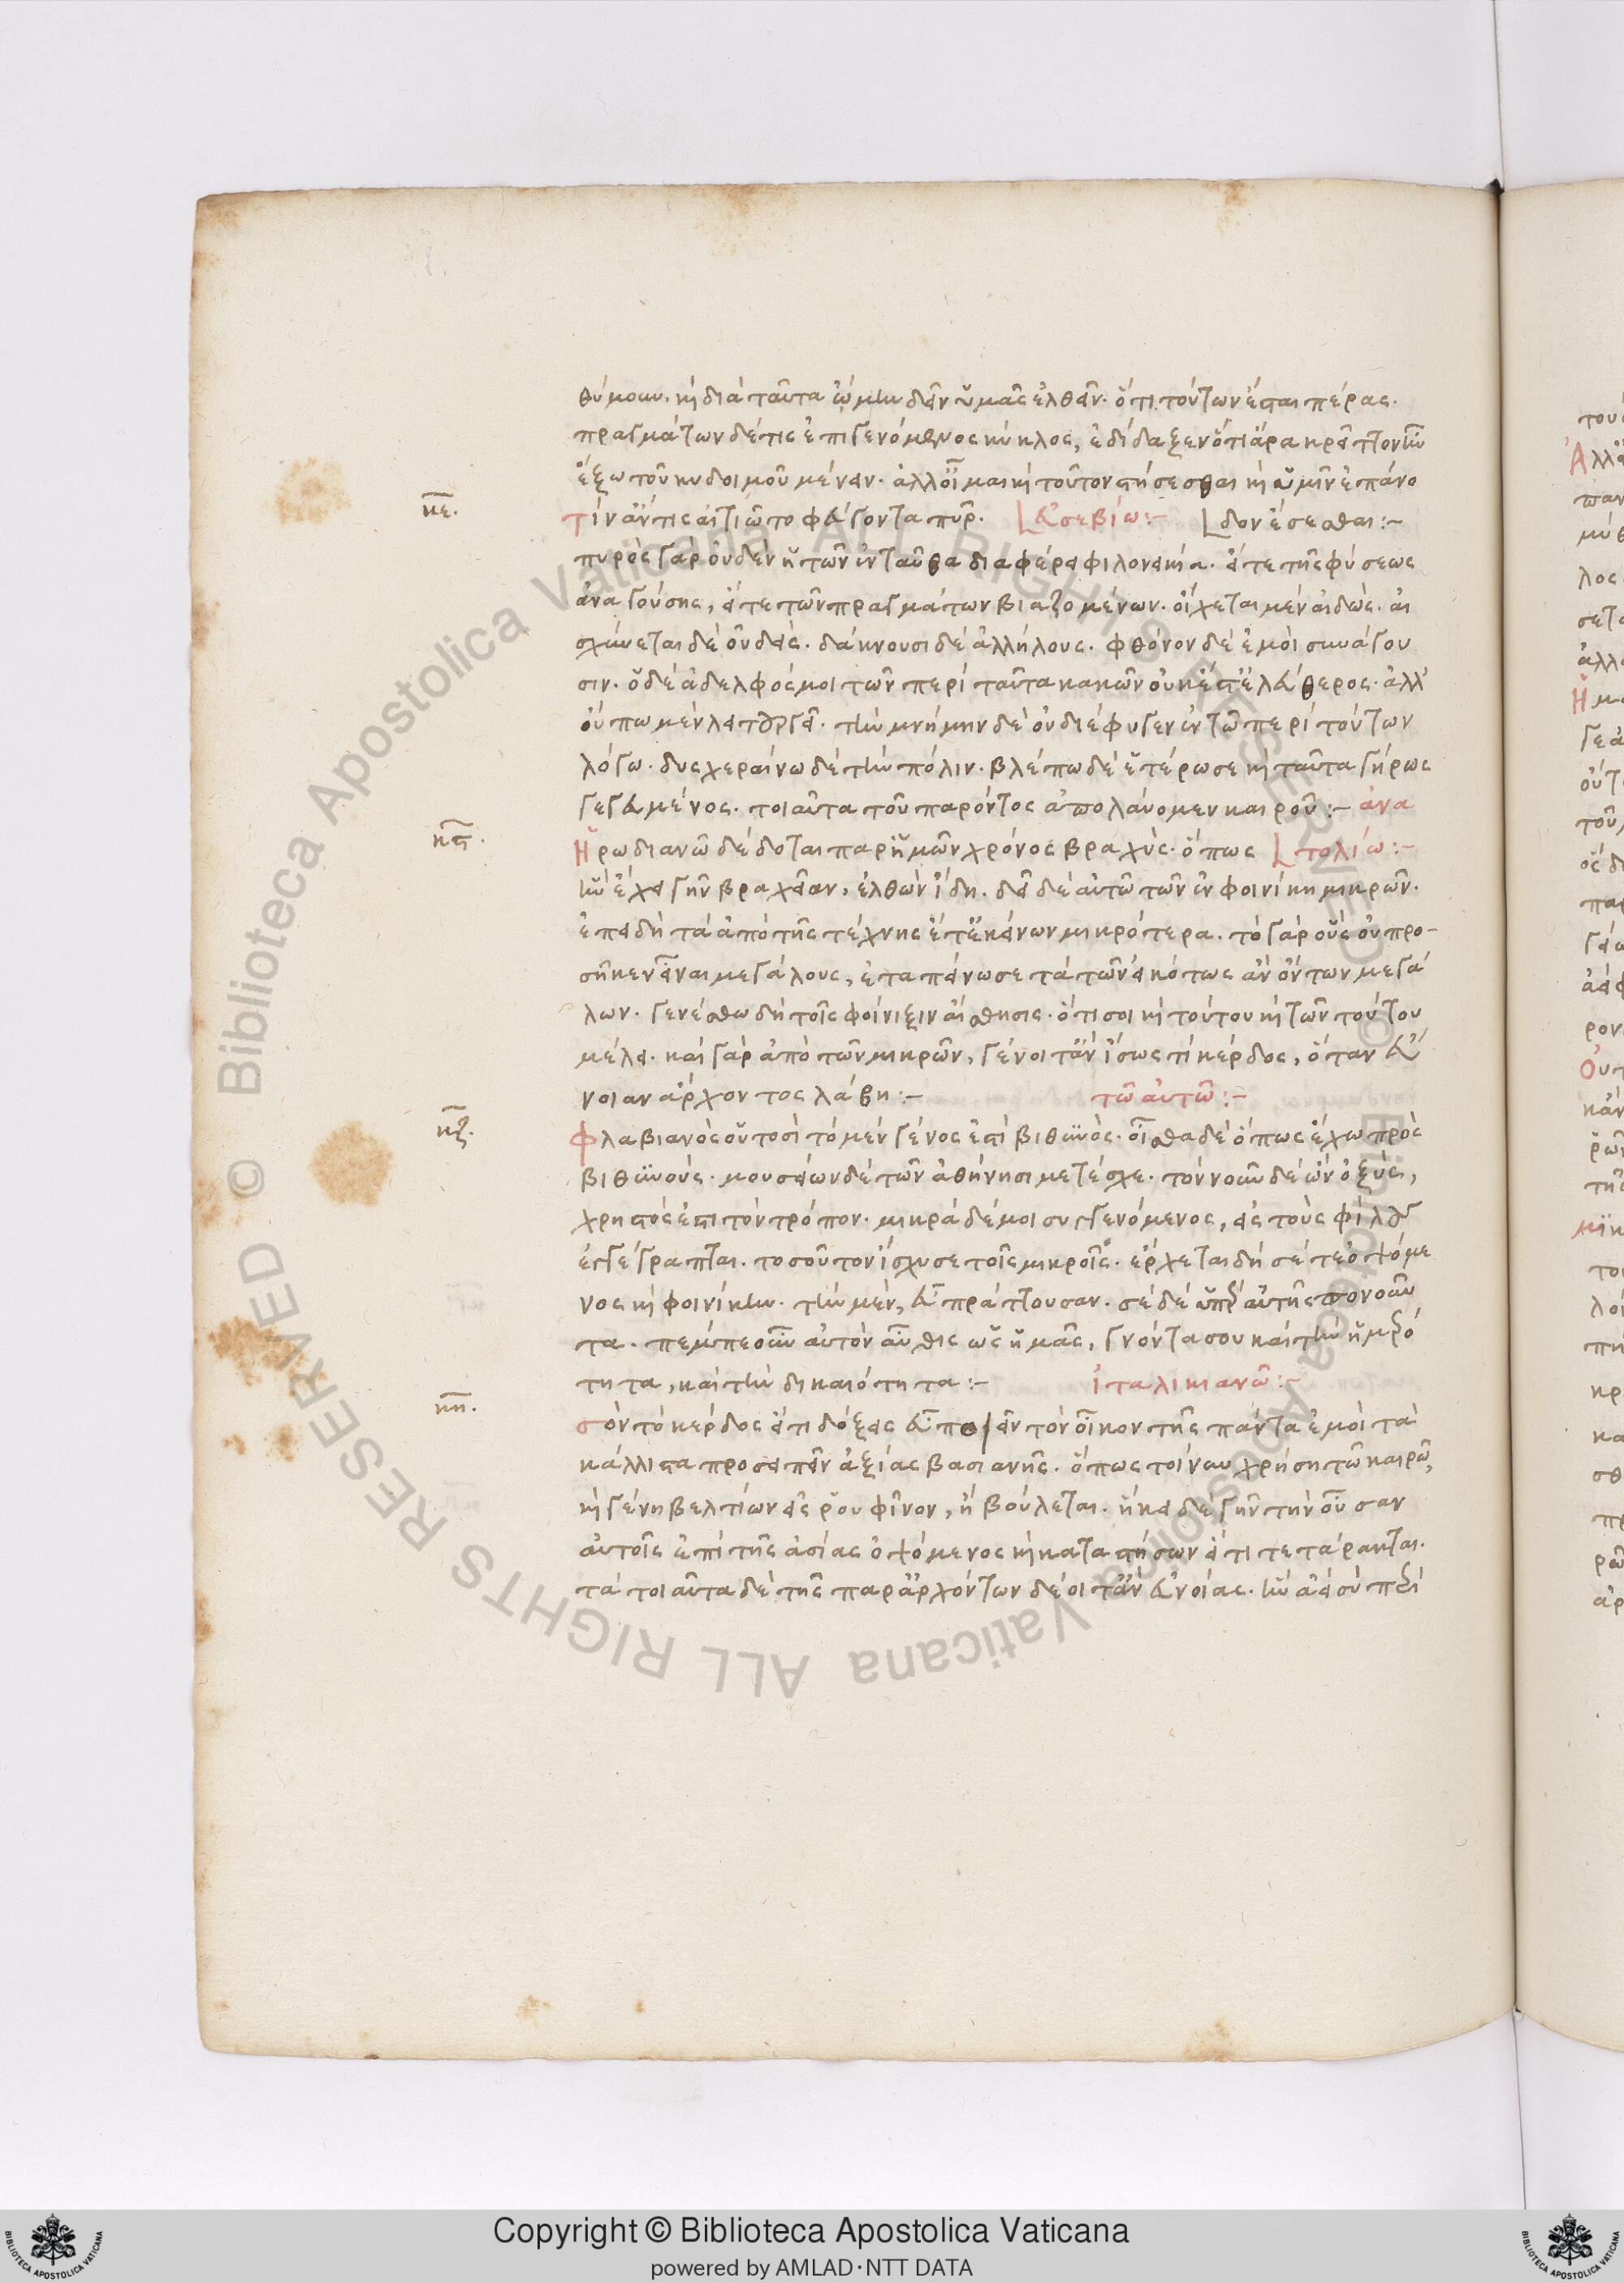 θύμουν. καὶ διὰ ταῦτα ᾤμην δεῖν ὑμᾶς ἐλθεῖν. ὅτι τούτων ἔσται πέρας.
πραγμάτων δέ τις ἐπιγενόμενος κύκλος, ἐδίδαξεν ὅτι ἄρα κρεῖττον ἦν
ἔξω τοῦ κυδοιμοῦ μένειν. ἀλλ οἶμαι καὶ τοῦτον στήσεσθαι καὶ ὑμῖν ἐπάνο
κε. τίν ἄν τις αἰτιῷτο φεύγοντα πῦρ. εὐσεβίω:- δον ἔσεσθαι:-
πυρὸς γὰρ οὐδὲν ἡ τῶν ἐνταῦθα διαφέρει φιλονεικία. εἴτε τῆς φύσεως
ἀναγούσης, εἴτε τῶν πραγμάτων βιαζομένων. οἴχεται μὲν αἰδώς. αἰ
σχύνεται δὲ οὐδείς. δάκνουσι δὲ ἀλλήλους. φθόνον δὲ ἐμοὶ συνάγου
σιν. ὁ δὲ ἀδελφός μοι τῶν περὶ ταῦτα κακῶν οὐκ ἔστ ἐλεύθερος. ἀλλ
οὔπω μὲν λειτουργεῖ. τὴν μνήμην δὲ οὐ διέφυγεν ἐν τῷ περὶ τούτων
λόγω. δυσχεραίνω δὲ τὴν πόλιν. βλέπω δὲ ἑτέρωσε καὶ ταῦτα γήρως
γεγευμένος. τοιαῦτα τοῦ παρόντος ἀπολαύομεν καιροῦ:- ἀνα
κς. Ἡρωδιανῷ δέδοται παρ ἡμῶν χρόνος βραχύς. ὅπως τολίω:-
ἣν ἔχει γῆν βραχεῖαν, ἐλθὼν ἴδη. δεῖ δὲ αὐτῷ τῶν ἐν φοινίκη μικρῶν.
ἐπειδὴ τὰ ἀπὸ τῆς τέχνης ἔτ ἐκείνων μικρότερα. τὸ γὰρ οὓς οὐ προ-
σῆκεν εἶναι μεγάλους, ἐταπείνωσε τὰ τῶν εἰκότως ἂν ὄντων μεγά
λων. γενέσθω δὴ τοῖς φοίνιξιν αἴσθησις. ὅτι σοι καὶ τούτου καὶ τῶν τούτου
μέλει. καὶ γὰρ ἀπὸ τῶν μικρῶν, γένοιτ ἂν ἴσως τὶ κέρδος, ὅταν εὔ
νοιαν ἄρχοντος λάβη:- τῷ αὐτῷ:-
κζ. Φλαβιανὸς οὑτοσὶ τὸ μὲν γένος ἐστὶ βιθυνός. οἶσθα δὲ ὅπως ἔχω πρὸς
βιθυνούς. μουσείων δὲ τῶν ἀθήνησι μετέσχε. τὸν νοῦν δὲ ὢν ὀξύς,
χρηστός ἐστι τὸν τρόπον. μικρὰ δέ μοι συγγενόμενος, εἰς τοὺς φίλους
ἐγγέγραπται. τοσοῦτον ἴσχυσε τοῖς μικροῖς. ἔρχεται δὴ σέ τε ὀψόμε
νος καὶ φοινίκην. τὴν μὲν, εὖ πράττουσαν. σὲ δὲ ὑπὲρ αὐτῆς πονοῦν
τα. πέμπε οὖν αὐτὸν αὖθις ὡς ἡμᾶς, γνόντα σου καὶ τὴν ἡμερό
τητα, καὶ τὴν δικαιότητα:- ἰταλικιανῷ:-
κη. σὸν τὸ κέρδος εἴ τι δόξεις εὖ ποιεῖν τὸν οἶκον τῆς πάντα ἐμοὶ τὰ
κάλλιστα προσειπεῖν ἀξίας βασιανῆς. ὅπως τοίνυν χρήση τῷ καιρῷ,
καὶ γένη βελτίων εἰς ῥουφῖνον, ἢ βούλεται. ἥκει δὲ γῆν τὴν οὖσαν
αὐτοῖς ἐπὶ τῆς ἀσίας ὀψόμενος καὶ καταστήσων εἴ τι τετάρακται.
τὰ τοιαῦτα δὲ τῆς παρ ἀρχόντων δέοιτ ἂν εὐνοίας. ἣν ἀεὶ σὺ περὶ